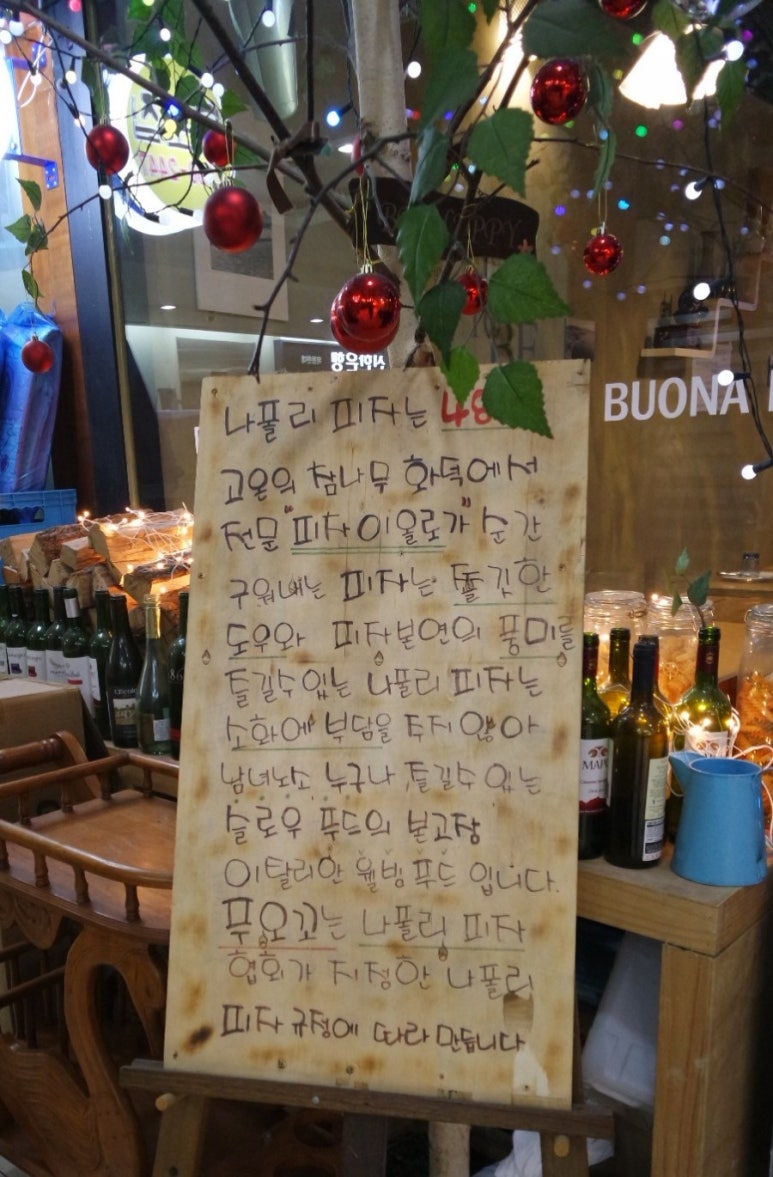 신한은행
BUONA
나폴리 피자는 48
고온의 참나무 화덕에서
전문 "피자이올로가" 순간
구워내는 피자는 쫄깃한
도우와 피자본연의 풍미를
즐길수 있는 나폴리 피자는
소화에 부담을 주지 않아
남녀노소 누구나 즐길수 있는
슬로우 푸드의 본고장
이탈리안 웰빙푸드 입니다.
푸오꼬는 나폴리 피자
협회가 지정한 나폴리
피자 규정에 따라 만듭니다
MAPU